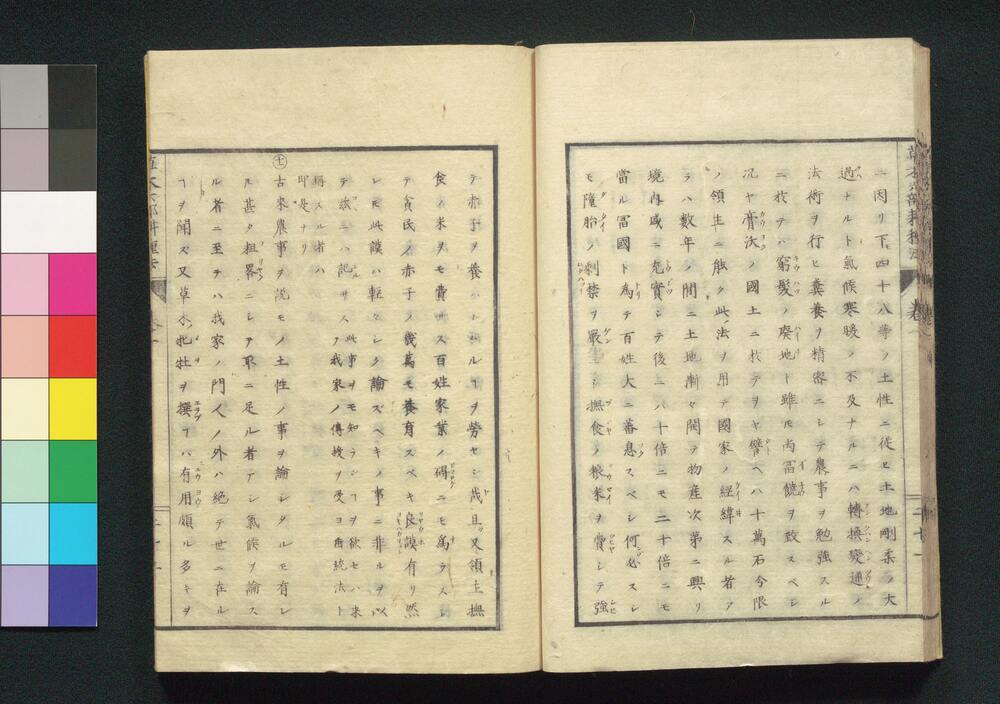 ニ因リ下四十八等ノ土性ニ従ヒ土地剛柔ノ大
過ナルト氣候寒暖ノ不及ナルニハ轉換變通ノ
法術ヲ行ヒ糞養ヲ精密ニシテ農事ヲ勉強スル
ニ技テハ窮髪ノ癈地ト雖ドモ尚冨饒ヲ致スベシ
况ヤ膏沃ノ國土ニ於テヲヤ譬ヘハ十萬石今限
ノ領主ニ能ク此法ヲ用テ國家ノ経緯スル者ア
ラハ数年ノ間ニ土地漸々開ラ物産次第ニ興リ
境内咸ニ充實シテ後ニハ十倍ニモ二十倍ニモ
當ル冨國ト為テ百姓大ニ蕃息スベシ何必スシ
モ墮胎ノ制禁ヲ嚴ニシ撫食ノ粮米ヲ費シテ強
テ赤子ヲ養ハシムルヿヲ勞セン哉且又領主撫
食ノ米ヲモ費サス百姓家業ノ碍ニモ為ラスシ
テ貧民ノ赤子ノ幾萬モ養育スベキ良謨有リ然
レモ此謨ハ輕々シク論スベキノ事ニ非ルヲ以
テ玆ニハ記サス此事ヲモ知ラシヿヲ欲セハ来
ヲ我家ノ傳授ヲ受ヨ再統法ト
稱スル者ハ
即是ナリ
七
古來農事ヲ説モノ土性ノ事ヲ論シタルモ有レ
ル甚タ粗畧ニシテ取ニ足ル者ナシ氣候ヲ論ス
ル者ニ至テハ我家ノ門人ノ外ハ絶テ世ニ在ル
ヿヲ聞ス又草木牝牡ヲ撰フヿハ有用頗ル多キヲ